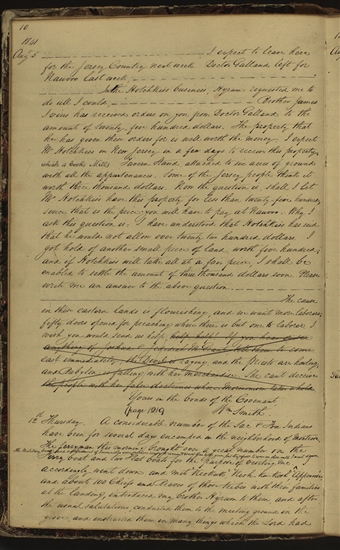 10
1841
Augt 5
I expect to leave here
for the Jersey Country next week. Doctor Galland left for
Nauvoo last week.
In the Hotchkiss business, Hyrum requested me to
do all I could, Brother James
Ivins has received orders on you from Doctor Galland to the
amount of twenty-five hundred dollars. The property that
he has given these orders for is well worth the money. I expect
Mr Hotchkiss in New Jersey in a few days to receive this property,
Tavern Stand, attached to ten acres of grounds
with all the appurtenances. Some of the Jersey people think it
worth three thousand dollars. Now the question is shall I let
Mr Hotchkiss have this property for less than twenty-five hundred,
since that is the price you will have to pay at Nauvoo. Why I
ask this question is: I have understood that Hotchkiss has said
that he would not allow over twenty two hundred dollars. I
got hold of another small piece of land, worth five hundred;
and if Hotchkiss will take all at a fair price, I shall be
enabled to settle the amount of three thousand dollars soon. Please
write me an answer to the above question.
The cause
in these eastern lands is flourishing, and we want more laborers;
fifty doors open for preaching where there is but one laborer; I
wish you would send us help,
raging and the Priests are howling,
and
Yours in the bonds of the Covenant,
(page 1219) Wm Smith
12th Thursday. A considerable number of the Sac & Fox Indians
have been for several day encamped in the neighborhood of Montrose.
The ferryman this morning brought over a great number on the
ferry boat and two flat boats for the purpose of visiting me.
accordingly went down, and met Keokuk, Kis-ku-kosh, Appenoose
and about 100 Chiefs and Braves of those tribes with their families
at the landing, introduced my brother Hyrum to them and after
the usual salutations conducted them to the meeting ground in the
grove, and instructed them in many things which the Lord had